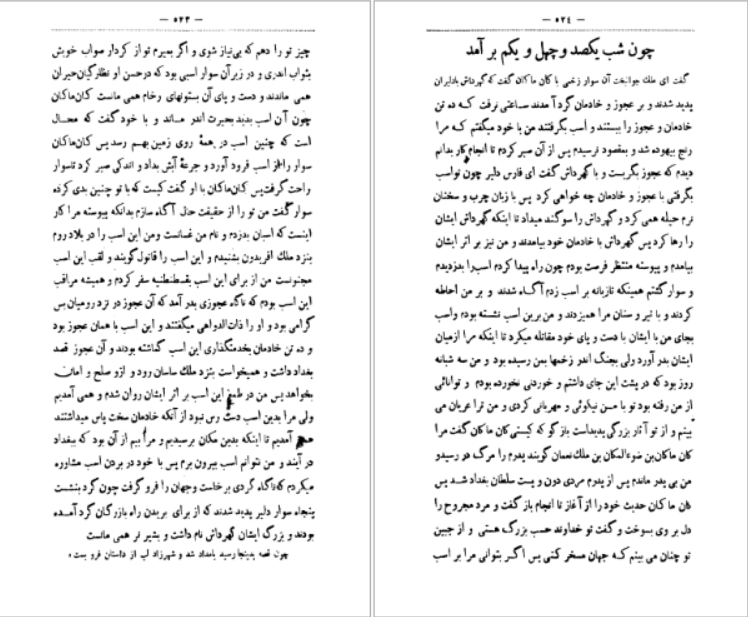 — ۵۲۳ —
چیز تو را دهم که بی‌نیاز شوی و اگر بمیرم تو از کردار صواب خویش
بثواب اندری و در زیر آن سوار اسبی بود که در حسن او نظارگیان حیران
همی ماندند و دست و پای آن بستونهای رخام همی مانست کان‌ماکان
چون آن اسب بدید بحیرت اندر ماند و با خود گفت که محال
است که چنین اسب در همهٔ روی زمین بهم رسد پس کان‌ماکان
سوار را از اسب فرود آورد و جرعهٔ آبش بداد و اندکی صبر کرد تا سوار
راحت گرفت پس کان‌ماکان با او گفت کیست که با تو چنین بدی کرده
سوار گفت من تو را از حقیقت حال آگاه سازم بدانکه پیوسته مرا کار
اینست که اسبان بدزدم و نام من غسانست و من این اسب را در بلاد روم
بنزد ملک افریدون بشنیدم و این اسب را قاتول گویند و لقب این اسب
مجنونست من از برای این اسب بقسطنطنیه سفر کردم و همیشه مراقب
این اسب بودم که ناگاه عجوزی بدر آمد که آن عجوز در نزد رومیان بس
گرامی بود و او را ذات‌الدواهی میگفتند و این اسب با همان عجوز بود
و ده تن خادمان بخدمتگذاری این اسب گماشته بودند و آن عجوز قصد
بغداد داشت و همیخواست بنزد ملک ساسان رود و ازو صلح و امان
بخواهد پس من در طمع این اسب بر اثر ایشان روان شدم و همی آمدیم
ولی مرا بدین اسب دست رس نبود از آنکه خادمان سخت پاس میداشتند
همی آمدیم تا اینکه بدین مکان برسیدیم و مرا بیم از آن بود که ببغداد
در آیند و من نتوانم اسب بیرون برم پس با خود در بردن اسب مشاوره
میکردم که ناگاه گردی برخاست و جهان را فرو گرفت چون گرد بنشست
پنجاه سوار دلیر پدید شدند که از برای بریدن راه بازرگان گرد آمده
بودند و بزرگ ایشان گهرداش نام داشت و بشیر نر همی مانست
چون قصه بدینجا رسید بامداد شد و شهرزاد لب از داستان فرو بست
— ۵۲۴ —
چون شب یکصد و چهل و یکم بر آمد
گفت ای ملک جوانبخت آن سوار زخمی با کان ماکان گفت که گهرداش با دلیران
پدید شدند و بر عجوز و خادمان گرد آمدند ساعتی نرفت که ده تن
خادمان و عجوز را ببستند و اسب بگرفتند من با خود میگفتم که مرا
رنج بیهوده شد و بمقصود نرسیدم پس از آن صبر کردم تا انجام کار بدانم
دیدم که عجوز بگریست و با گهرداش گفت ای فارس دلیر چون تو اسب
بگرفتی با عجوز و خادمان چه خواهی کرد پس با زبان چرب و سخنان
نرم حیله همی کرد و گهرداش را سوگند میداد تا اینکه گهرداش ایشان
را رها کرد پس گهرداش با خادمان خود بیامدند و من نیز بر اثر ایشان
بیامدم و پیوسته منتظر فرصت بودم چون راه پیدا کردم اسب را بدزدیدم
و سوار گشتم همینکه تازیانه بر اسب زدم آگاه شدند و بر من احاطه
کردند و با تیر و سنان مرا همیزدند و من برین اسب نشسته بودم و اسب
بجای من با ایشان با دست و پای خود مقاتله میکرد تا اینکه مرا از میان
ایشان بدر آورد ولی بجنگ اندر زخمها بمن رسیده بود و من سه شبانه
روز بود که در پشت این جای داشتم و خوردنی نخورده بودم و توانائی
از من رفته بود تو با من نیکوئی و مهربانی کردی و من ترا عریان می
بینم و از تو آثار بزرگی پدیداست باز گو که کیستی کان ماکان گفت مرا
کان ماکان بن ضوءالمکان بن ملک نعمان گویند پدرم را مرگ در رسید و
من بی پدر ماندم پس از پدرم مردی دون و پست سلطان بغداد شد پس
کان ماکان حدیث خود را از آغاز تا انجام باز گفت و مرد مجروح را
دل بر وی بسوخت و گفت تو خداوند حسب بزرگ هستی و از جبین
تو چنان می بینم که جهان مسخر کنی پس اگر بتوانی مرا بر اسب